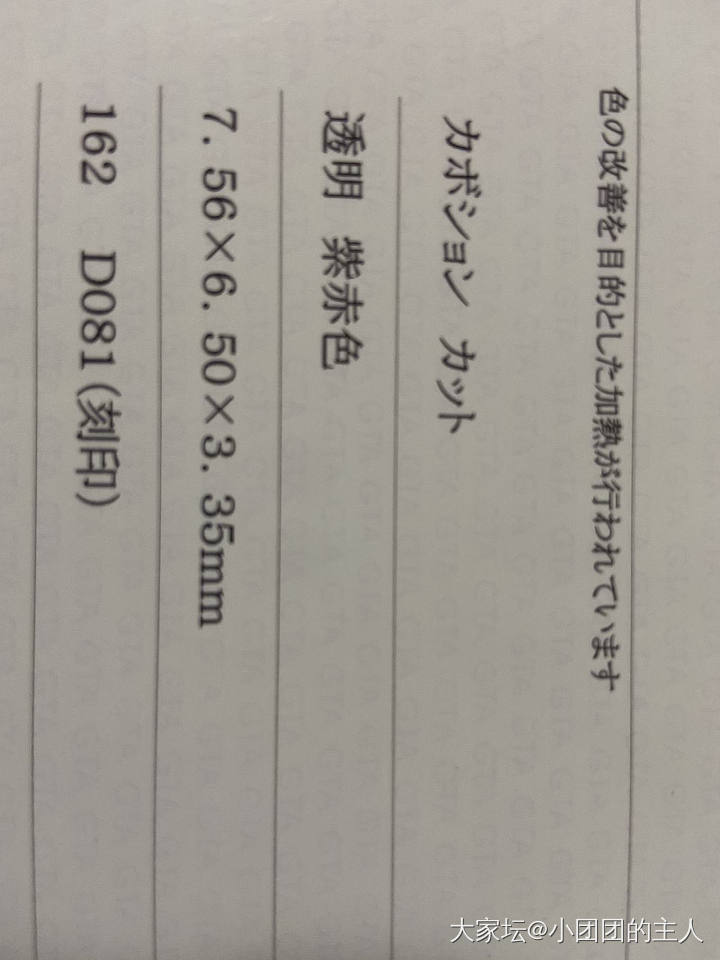 色の改善を目的とした加熱が行われています
カボション カット
透明 紫赤色
7. 56×6. 50×3. 35mm
162 D081(刻印)
大家坛@小团团的主人